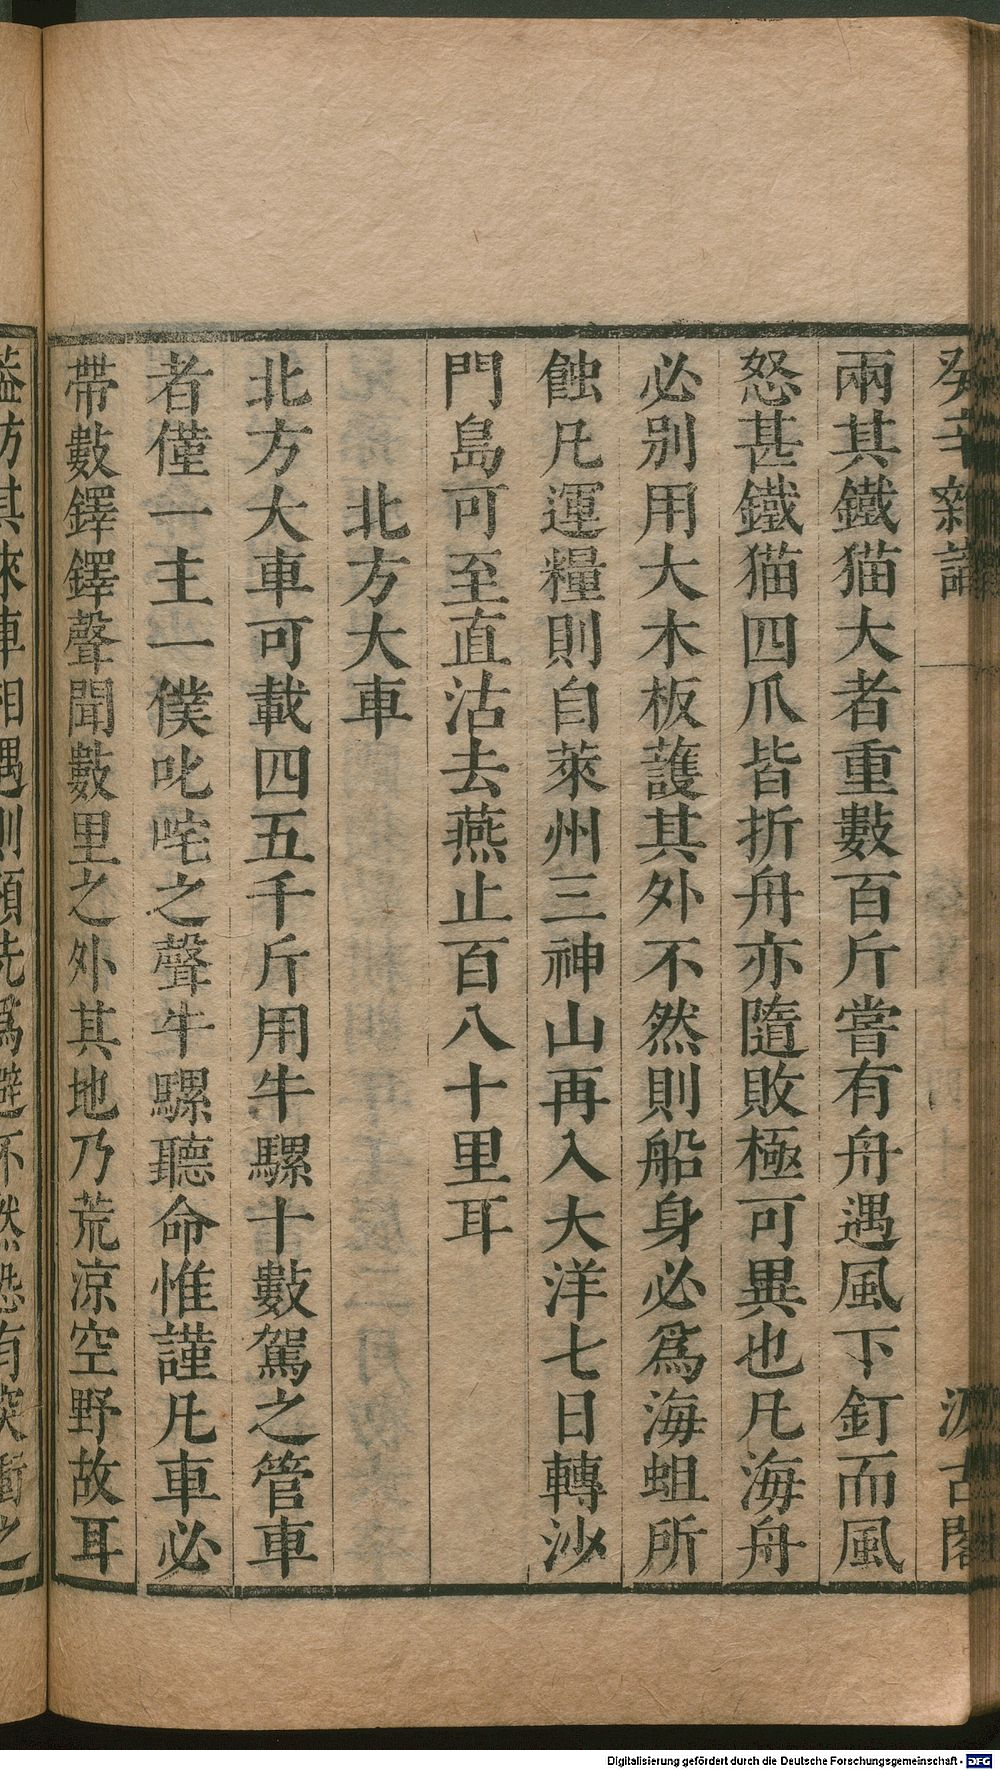 癸辛雜識
汲古閣
兩其鐵猫大者重數百斤嘗有舟遇風下釘而風
怒甚鐵猫四爪皆折舟亦隨敗極可異也凡海舟
必别用大木板護其外不然則船身必爲海蛆所
蝕凡運糧則自萊州三神山再入大洋七日轉沙
門島可至直沽去燕止百八十里耳
北方大車
北方大車可載四五千斤用牛騾十數駕之管車
者僅一主一僕叱咤之聲牛騾聽命惟謹凡車必
帶數鐸鐸聲聞數里之外其地乃荒涼空野故耳
葢防其來車相遇則預先爲避不然恐有突衝之
Digitalisierung gefördert durch die Deutsche Forschungsgemeinschaft - DFG